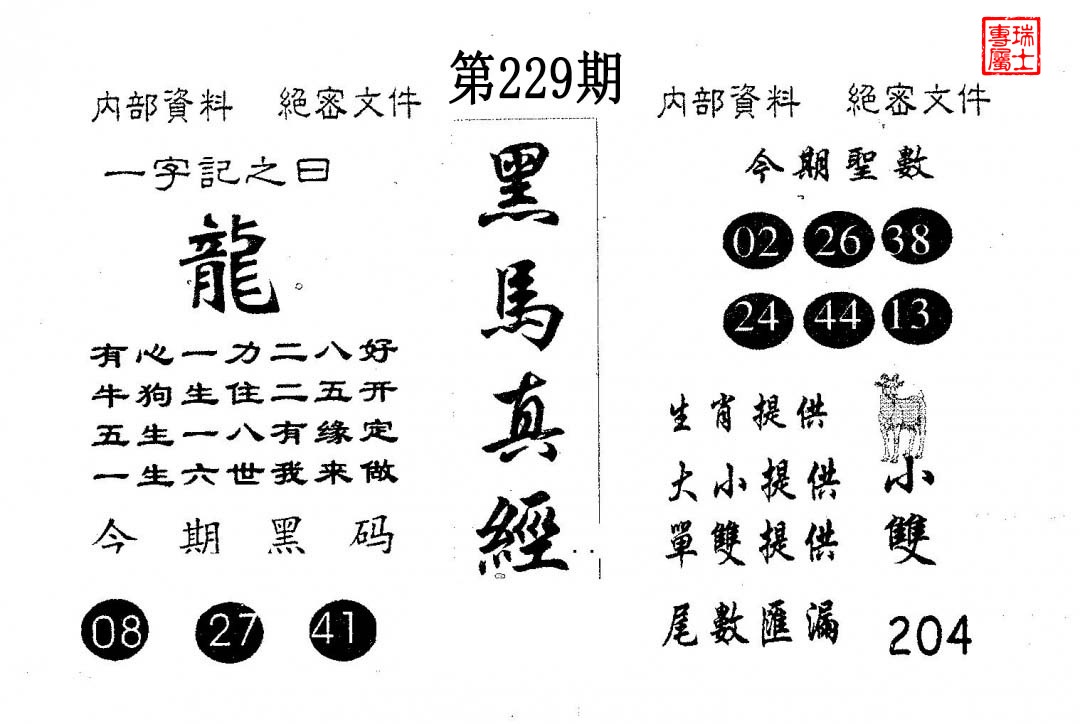 瑞士專屬
第229期
内部資料 絕密文件
内部資料 絕密文件
一字記之曰
龍
有心一力二八好
牛狗生住二五开
五生一八有缘定
一生六世我来做
今期黑码
08 27 41
黑馬真經
今期聖數
02 26 38
24 44 13
生肖提供
大小提供 小
單雙提供 雙
尾數匯漏 204